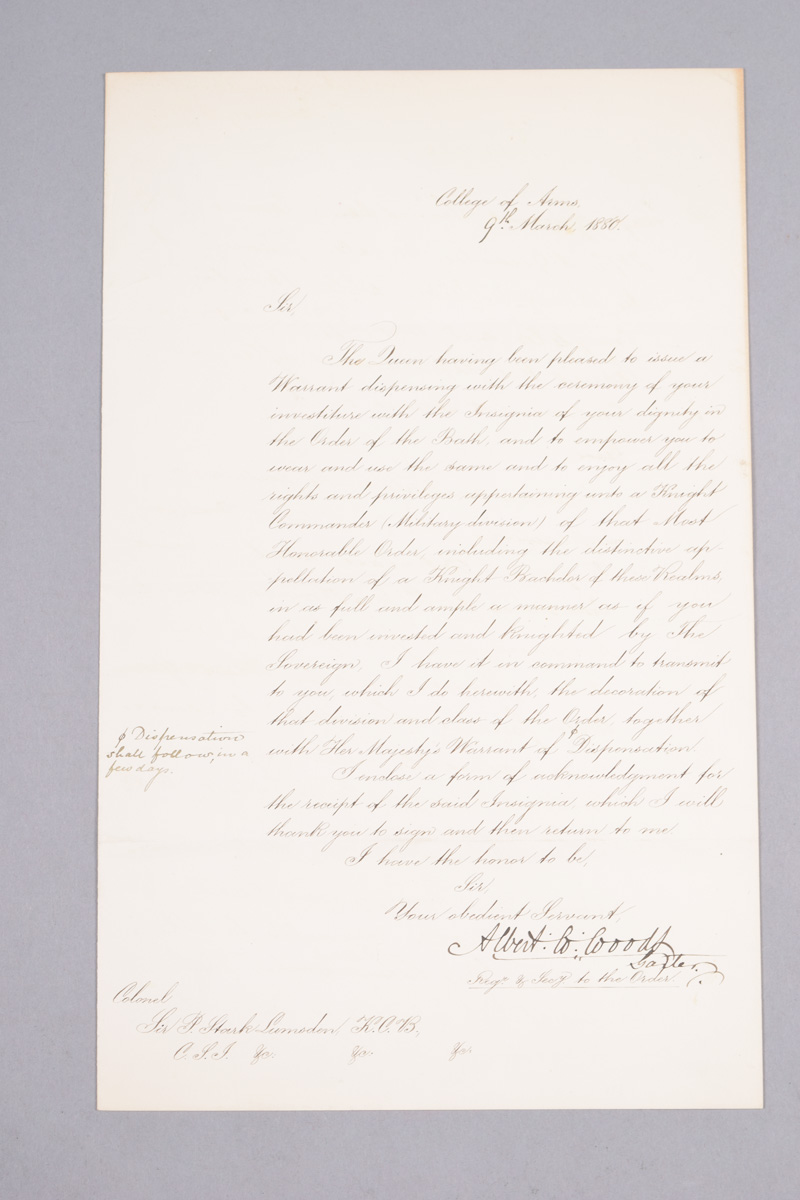 College of Arms.
9th March, 1880.
Sir,
The Queen having been pleased to issue a
Warrant dispensing with the ceremony of your
investiture with the Insignia of your dignity in
the Order of the Bath, and to empower you to
wear and use the same and to enjoy all the
rights and privileges appertaining unto a Knight
Commander (Military division) of that Most
Honorable Order, including the distinctive ap-
pellation of a Knight Bachelor of these Realms,
in as full and ample a manner as if you
had been invested and knighted by The
Sovereign, I have it in command to transmit
to you, which I do herewith, the decoration of
that division and class of the Order, together
with Her Majesty's Warrant of ϕ Dispensation.
ϕ Dispensation
shall follow, in a
few days.
I enclose a form of acknowledgment for
the receipt of the said Insignia, which I will
thank you to sign and then return to me
I have the honor to be,
Sir,
Your obedient Servant,
Albert W. Woods
Garter.
Regr & Secy to the Order.
Colonel
Sir P. Stark Lumsden, K.C.B,
C.S.I. &c. &c. &c.